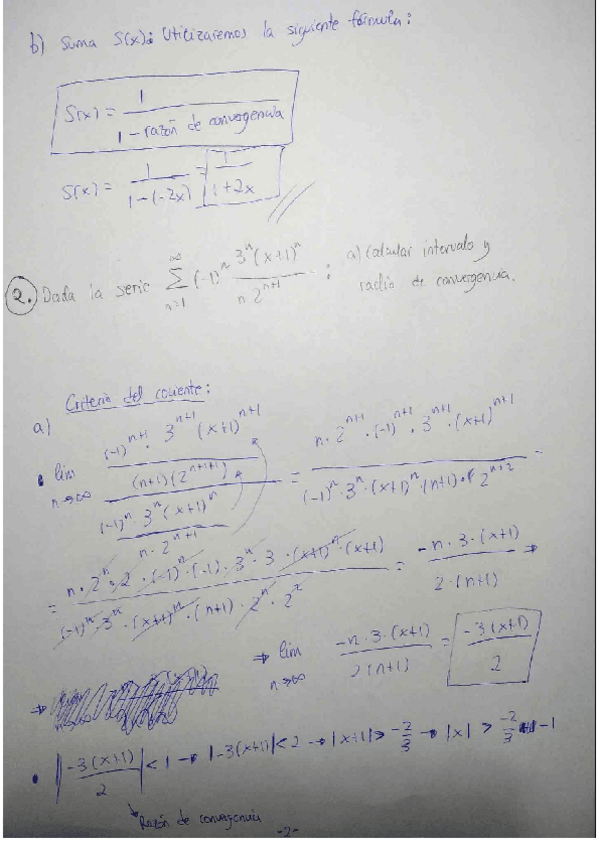 b) Suma S(x): Utilizaremos la siguiente fórmula:
S(x) = 1 / (1 - razón de convergencia)
S(x) = 1 / (1-(-2x)) = 1 / (1+2x)
2. Dada la serie ∑_{n=1}^{∞} (-1)^n 3^n (x+1)^n / (n·2^{n+1}) : a) Calcular intervalo y
radio de convergencia.
a) Criterio del cociente:
• lim_{n→∞} [(-1)^{n+1} · 3^{n+1} (x+1)^{n+1} / ((n+1)(2^{n+1+1}))] / [(-1)^n · 3^n (x+1)^n / (n·2^{n+1})] = n·2^{n+1}·(-1)^{n+1}·3^{n+1}·(x+1)^{n+1} / ((-1)^n·3^n·(x+1)^n·(n+1)·2^{n+2}) =
= n·2^n·2·(-1)^n·(-1)·3^n·3·(x+1)^n·(x+1) / ((-1)^n·3^n·(x+1)^n·(n+1)·2^n·2^2) = -n·3·(x+1) / (2·(n+1)) ⇒
⇒ ⇒ lim_{n→∞} -n·3·(x+1) / (2(n+1)) = -3(x+1) / 2
• |-3(x+1) / 2| < 1 → |-3(x+1)| < 2 → |x+1| > -2/3 → |x| > -2/3 -1
Razón de convergencia
-2-